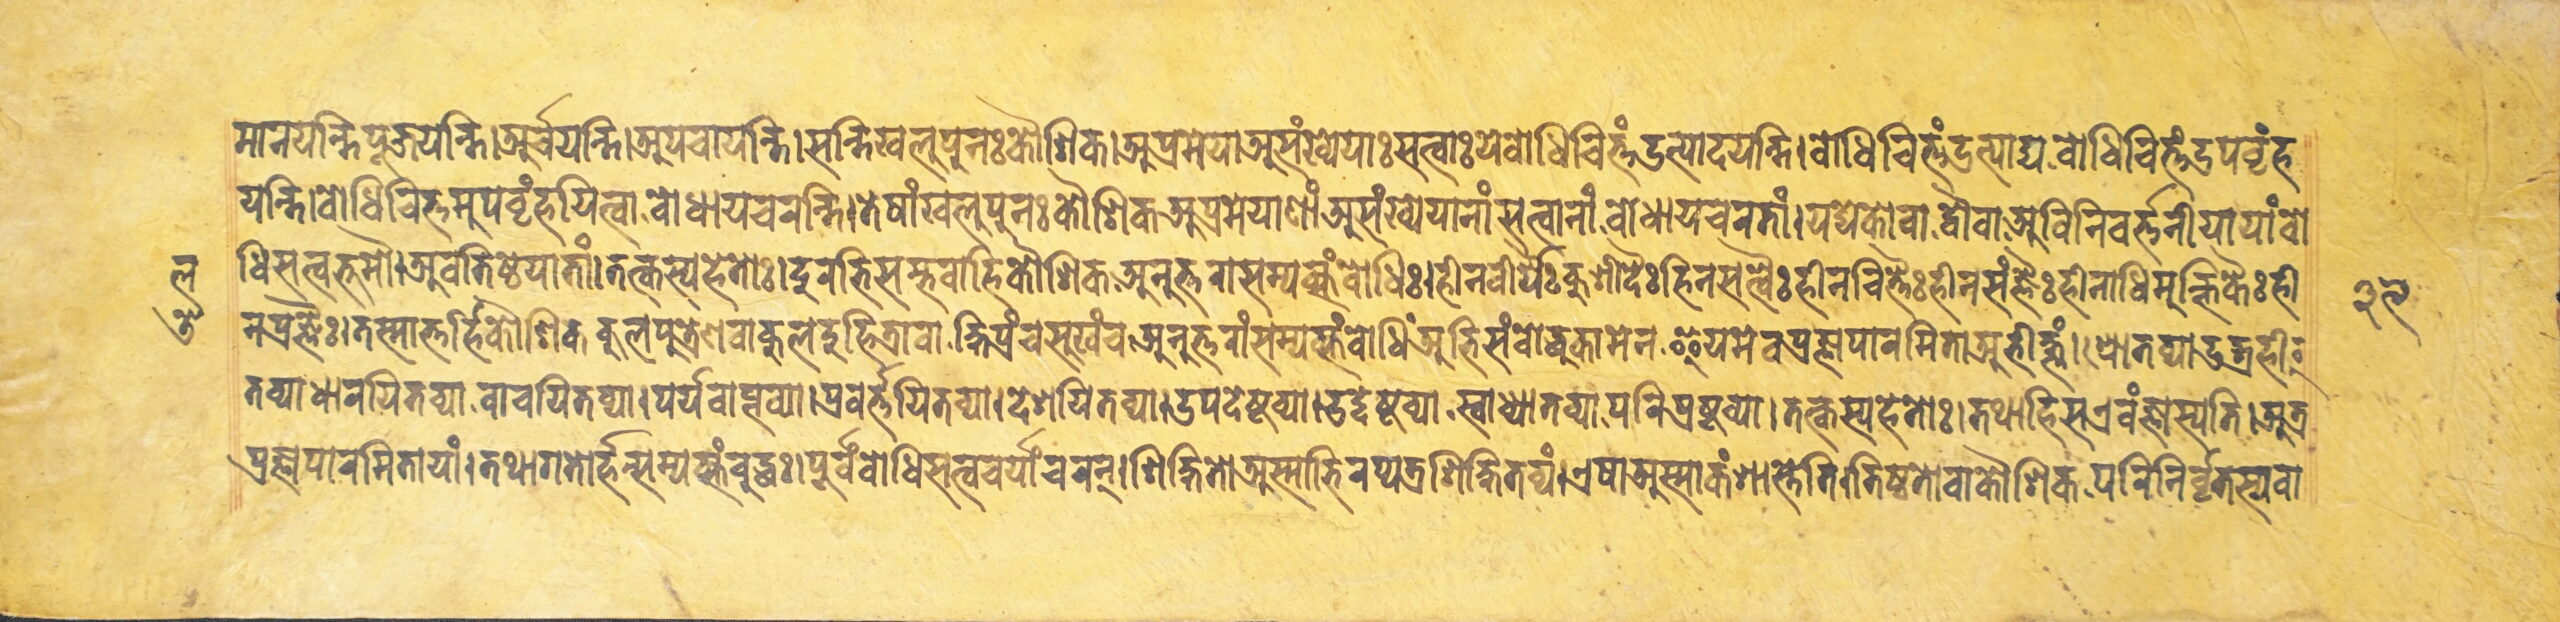 मानयन्ति पूजयन्ति।अर्चयन्ति।अपचायन्ति।सन्ति खलु पुनः कौशिक।अप्रमेया असंख्येयाः सत्वाः ये बोधिचित्तंउत्पादयन्ति।बोधिचित्तंउत्पाद्य बोधिचित्तंउपबृंह
यन्ति।बोधिचित्तमुपबृंहयित्वा बोधाय चरन्ति।तेषां खलु पुनः कौशिक अप्रमेयाणां असंख्येयानां सत्वानां बोधाय चरतां।यद्येको वा द्वौ वा अविनिवर्त्तनीयायां बो
धिसत्वभूमौ।अवतिष्ठेयातां।तत्कस्य हेतोः।दुरभिसम्भवा हि कौशिक अनुत्तरा सम्यक्संबोधिः।हीनवीर्यैः कुशीदैः हिनसत्वैः हीनचित्तैः हीनसंज्ञैः हीनाधिमुक्तिकैः ही
नप्रज्ञैः।तस्मात्तर्हि कौशिक कुलपुत्रेण वा कुलदुहित्रा वा क्षिप्रं च सुखं च अनुत्तरां सम्यक्संबोधिं अभिसंबोद्धुकामेन इयमेव प्रज्ञापारमिता अभीक्ष्णं।श्रोतव्या उद्ग्रही
तव्या धारयितव्या वाचयितव्या।पर्यवाप्तव्या।प्रवर्त्तयितव्या।देशयितव्या।उपदेष्टव्या।उद्देष्टव्या स्वाध्यातव्या परिप्रष्टव्या।तत्कस्य हेतोः।तथा हि स एवं ज्ञास्यति।अत्र
प्रज्ञापारमितायां।तथागतोर्हन्सम्यक्संबुद्धः।पूर्वं बोधिसत्वचर्यां चरन्।शिक्षितो अस्माभिरप्यत्र शिक्षितव्यं।एषा अस्माकं शास्तेति।तिष्ठतो वा कौशिक परिनिर्वृतस्य वा